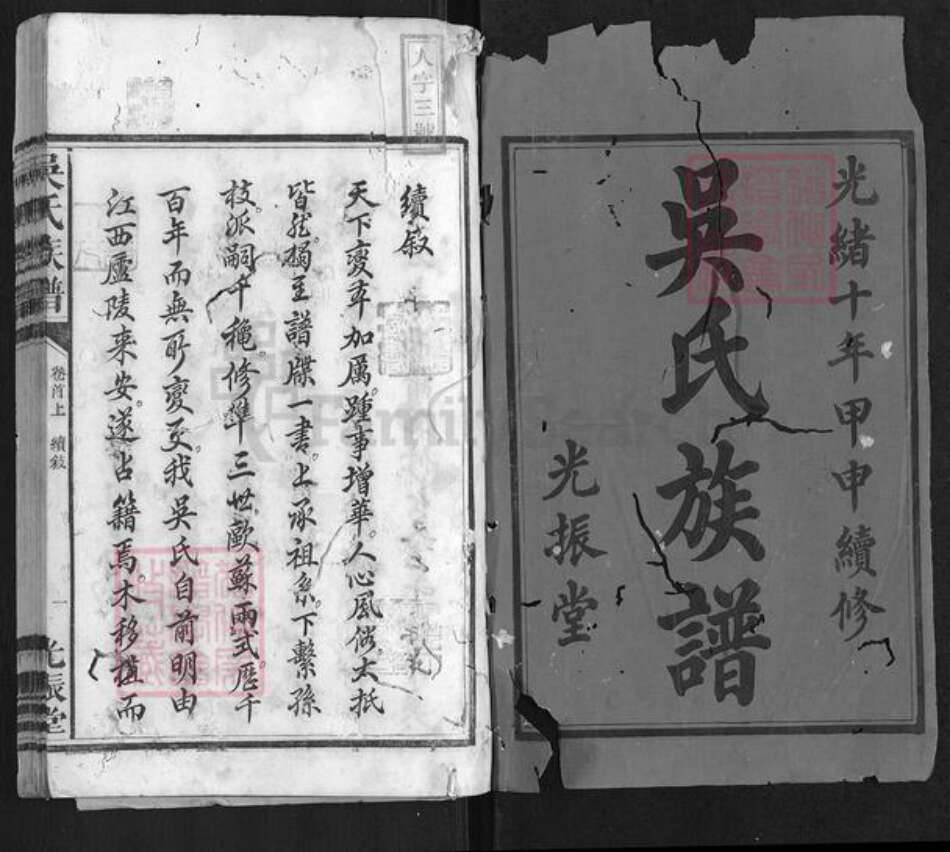 光緒十年甲申續修
吳氏族譜
光振堂
人字三號
續叙
天下變本加厲。踵事增華。人心風俗。大抵
皆然。獨至譜牒一書。上承祖系。下繫孫
枝。派嗣千穐。修準三世。歐蘇兩式。歷千
百年而無所變更。我吳氏自前明由
江西廬陵来安。遂占籍焉。木移櫨而
吳氏族譜
卷首上
續敘
一
光振堂
FamilySearch